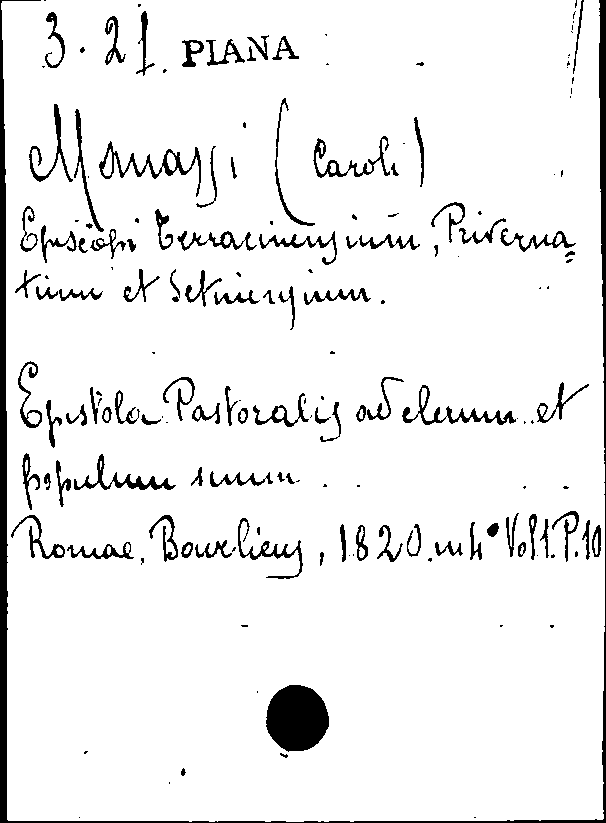 3. 21. PIANA
Manassi (Caroli)
Episcopi Terracinensium, Priverna=
tium et Setinensium.
Epistola Pastoralis ad clerum et
populum suum.
Romae, Bourlieus, 1820. in 4° Vol 1. P. 10